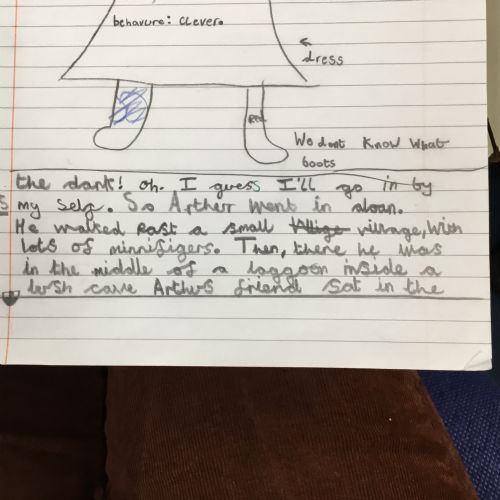 behavure: Clever.
dress
Red
We dont know what
boots
the dark! oh. I guess I'll go in by
my self. So Artherr went in aloan.
He walked past a small villiage, with
lots of minnifigers. Then, there he was
in the middle of a laggoon inside a
lush cave Arthus friend sat in the